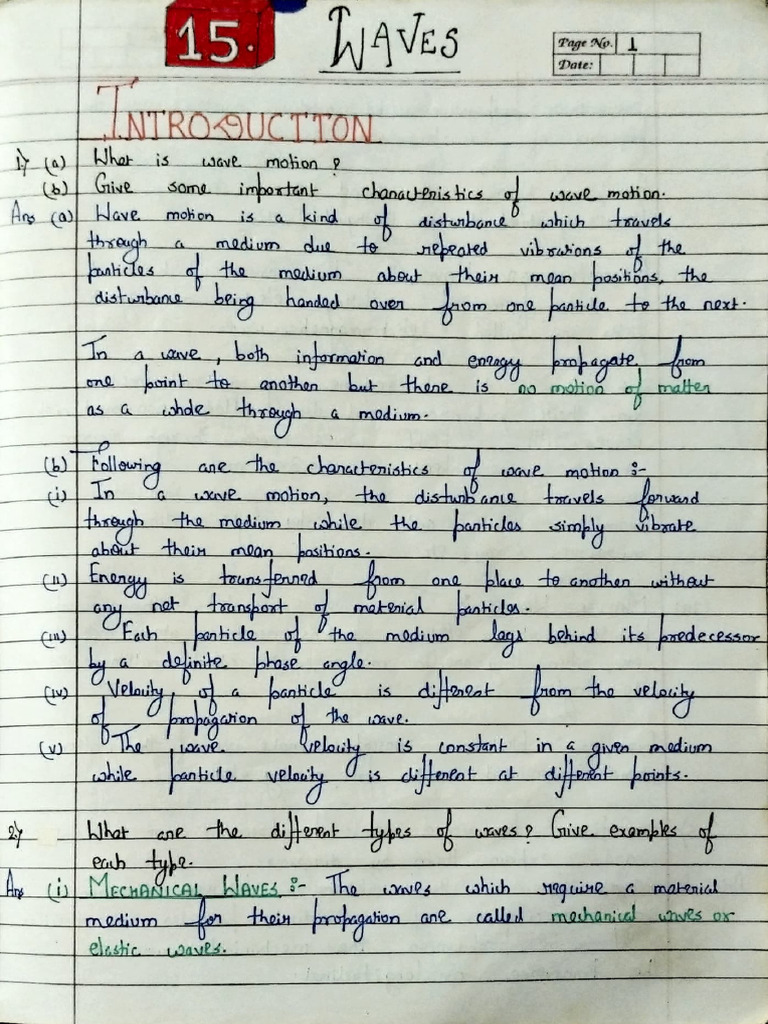 15.
WAVES
Page No. 1
Date:
INTRODUCTION
1.) (a) What is wave motion ?
(b) Give some important characteristics of wave motion.
Ans (a) Wave motion is a kind of disturbance which travels
through a medium due to repeated vibrations of the
particles of the medium about their mean positions, the
disturbance being handed over from one particle to the next.
In a wave, both information and energy propagate from
one point to another but there is no motion of matter
as a whole through a medium.
(b) Following are the characteristics of wave motion :-
(i) In a wave motion, the disturbance travels forward
through the medium while the particles simply vibrate
about their mean positions.
(ii) Energy is transferred from one place to another without
any net transport of material particles.
(iii) Each particle of the medium lags behind its predecessor
by a definite phase angle.
(iv) Velocity of a particle is different from the velocity
of propagation of the wave.
(v) The wave velocity is constant in a given medium
while particle velocity is different at different points.
2.) What are the different types of waves? Give examples of
each type.
Ans (i) MECHANICAL WAVES :- The waves which require a material
medium for their propagation are called mechanical waves or
elastic waves.